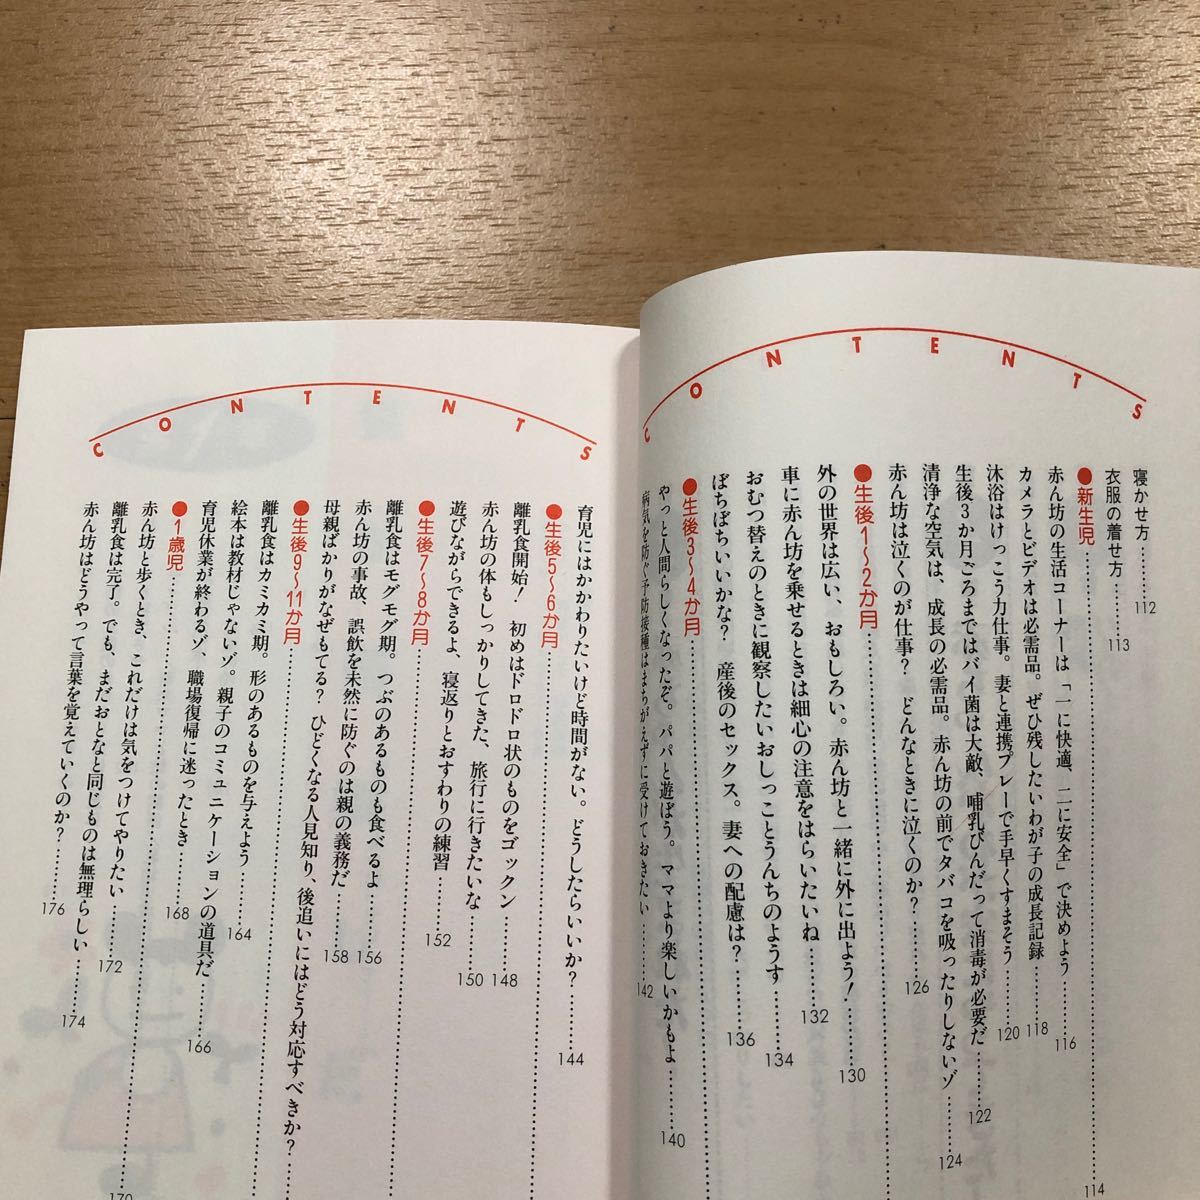 CONTENTS
寝かせ方……112
衣服の着せ方……113
●新生児……114
赤ん坊の生活コーナーは「一に快適、二に安全」で決めよう……116
カメラとビデオは必需品。ぜひ残したいわが子の成長記録……118
沐浴はけっこう力仕事。妻と連携プレーで手早くすまそう……120
生後3か月ごろまではバイ菌は大敵、哺乳びんだって消毒が必要だ……122
清浄な空気は、成長の必需品。赤ん坊の前でタバコを吸ったりしないゾ……124
赤ん坊は泣くのが仕事？　どんなときに泣くのか？……126
●生後1〜2か月
外の世界は広い、おもしろい。赤ん坊と一緒に外に出よう！……130
車に赤ん坊を乗せるときは細心の注意をはらいたいね……132
おむつ替えのときに観察したいおしっことうんちのようす……134
ぼちぼちいいかな？　産後のセックス。妻への配慮は？……136
●生後3〜4か月
やっと人間らしくなったぞ。パパと遊ぼう。ママより楽しいかもよ……140
病気を防ぐ予防接種はまちがえずに受けておきたい……142
CONTENTS
育児にはかかわりたいけど時間がない。どうしたらいいか？……144
●生後5〜6か月
離乳食開始！　初めはドロドロ状のものをゴックン……148
赤ん坊の体もしっかりしてきた、旅行に行きたいな……150
遊びながらできるよ、寝返りとおすわりの練習……152
●生後7〜8か月
離乳食はモグモグ期。つぶのあるものも食べるよ……156
赤ん坊の事故、誤飲を未然に防ぐのは親の義務だ……158
母親ばかりがなぜもてる？　ひどくなる人見知り、後追いにはどう対応すべきか？
●生後9〜11か月
離乳食はカミカミ期。形のあるものを与えよう……164
絵本は教材じゃないゾ。親子のコミュニケーションの道具だ……166
育児休業が終わるゾ、職場復帰に迷ったとき……168
●1歳児……170
赤ん坊と歩くとき、これだけは気をつけてやりたい……172
離乳食は完了。でも、まだおとなと同じものは無理らしい……174
赤ん坊はどうやって言葉を覚えていくのか？……176